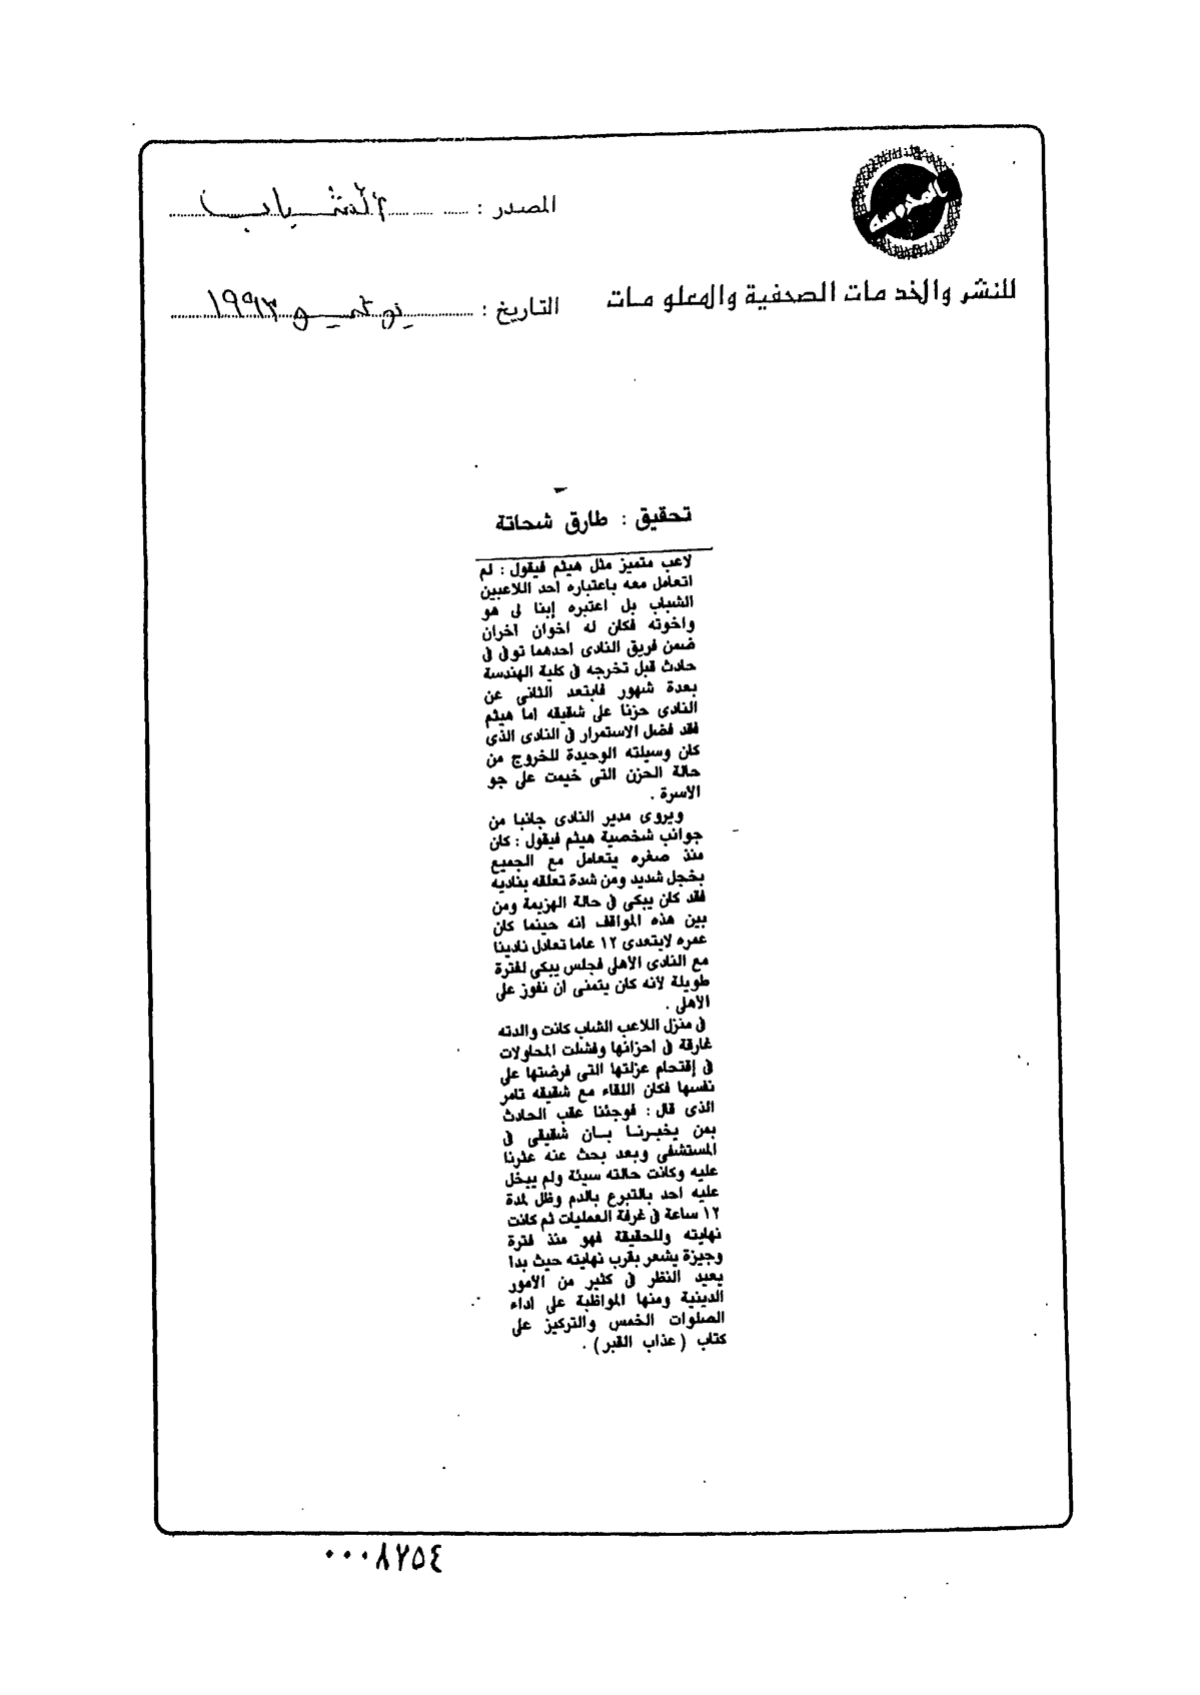 المصدر : الشباب
للنشر والخدمات الصحفية والمعلومات
التاريخ : يونيو ١٩٩٣
تحقيق : طارق شحاتة
لاعب متميز مثل هيثم فيقول : لم
اتعامل معه باعتباره احد اللاعبين
الشباب بل اعتبره إبنا لى هو
واخوته فكان له اخوان اخران
ضمن فريق النادى احدهما توفى فى
حادث قبل تخرجه فى كلية الهندسة
بعدة شهور فابتعد الثانى عن
النادى حزنا على شقيقه اما هيثم
فقد فضل الاستمرار فى النادى الذى
كان وسيلته الوحيدة للخروج من
حالة الحزن التى خيمت على جو
الاسرة .
ويروى مدير النادى جانبا من
جوانب شخصية هيثم فيقول : كان
منذ صغره يتعامل مع الجميع
بخجل شديد ومن شدة تعلقه بناديه
فقد كان يبكى فى حالة الهزيمة ومن
بين هذه المواقف انه حينما كان
عمره لايتعدى ١٢ عاما تعادل نادينا
مع النادى الاهلى فجلس يبكى لفترة
طويلة لانه كان يتمنى ان نفوز على
الاهلى .
فى منزل اللاعب الشاب كانت والدته
غارقة فى احزانها وفشلت المحاولات
فى إقتحام عزلتها التى فرضتها على
نفسها فكان اللقاء مع شقيقه تامر
الذى قال : فوجئنا عقب الحادث
بمن يخبرنا بان شقيقى فى
المستشفى وبعد بحث عنه عثرنا
عليه وكانت حالته سيئة ولم يبخل
عليه احد بالتبرع بالدم وظل لمدة
١٢ ساعة فى غرفة العمليات ثم كانت
نهايته وللحقيقة فهو منذ فترة
وجيزة يشعر بقرب نهايته حيث بدا
يعيد النظر فى كثير من الامور
الدينية ومنها المواظبة على اداء
الصلوات الخمس والتركيز على
كتاب ( عذاب القبر ) .
٠٠٠٨٢٥٤